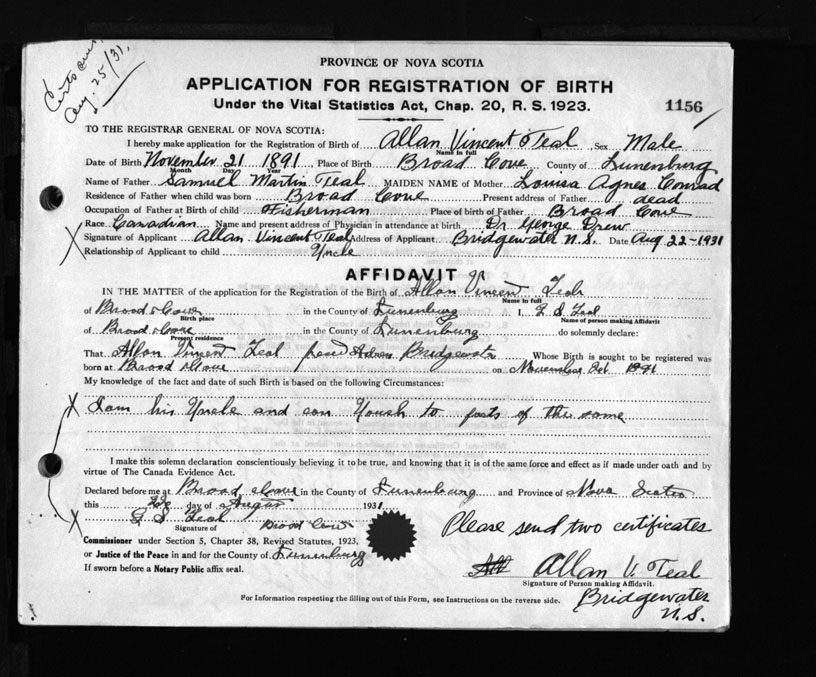 Certs
Aug. 25/31.
PROVINCE OF NOVA SCOTIA
APPLICATION FOR REGISTRATION OF BIRTH
Under the Vital Statistics Act, Chap. 20, R. S. 1923.
1156
TO THE REGISTRAR GENERAL OF NOVA SCOTIA:
I hereby make application for the Registration of Birth of Allan Vincent Teal Sex Male
Name in full
Date of Birth November 21 1891 Place of Birth Broad Cove County of Lunenburg
Month Day Year
Name of Father Samuel Martin Teal MAIDEN NAME of Mother Louisa Agnes Conrad
Residence of Father when child was born Broad Cove Present address of Father dead
Occupation of Father at Birth of child Fisherman Place of birth of Father Broad Cove
Race Canadian Name and present address of Physician in attendance at birth Dr George Drew
Signature of Applicant Allan Vincent Teal Address of Applicant Bridgewater N.S. Date Aug 22-1931
Relationship of Applicant to child Uncle
AFFIDAVIT
IN THE MATTER of the application for the Registration of the Birth of Allan Vincent Teal
Name in full
of Broad Cove in the County of Lunenburg I, S Teal
Birth place Name of person making Affidavit
of Broad Cove in the County of Lunenburg do solemnly declare:
Present residence
That Allan Vincent Teal Adress Bridgewater Whose Birth is sought to be registered was
born at Broad Cove on November 21 1891
My knowledge of the fact and date of such Birth is based on the following Circumstances:
I am his Uncle and can to facts of the same
I make this solemn declaration conscientiously believing it to be true, and knowing that it is of the same force and effect as if made under oath and by
virtue of The Canada Evidence Act.
Declared before me at Broad Cove in the County of Lunenburg and Province of Nova Scotia
this day of August 1931
S Teal Broad Cove
Signature of
Please send two certificates
Commissioner under Section 5, Chapter 38, Revised Statutes, 1923,
or Justice of the Peace in and for the County of Lunenburg
If sworn before a Notary Public affix seal.
Allan V. Teal
Signature of Person making Affidavit.
Bridgewater
N.S.
For Information respecting the filling out of this Form, see Instructions on the reverse side.